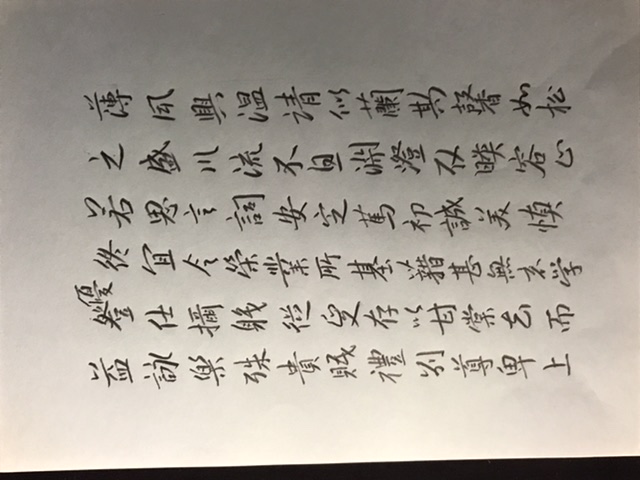 薄夙興温清似蘭斯馨如松
之盛川流不息淵澄取暎容止
若思言詞安定篤初誠美慎
終宜令榮業所基藉甚無竟學
優登仕攝職從政存以甘棠去而
益詠樂殊貴賤禮別尊卑上